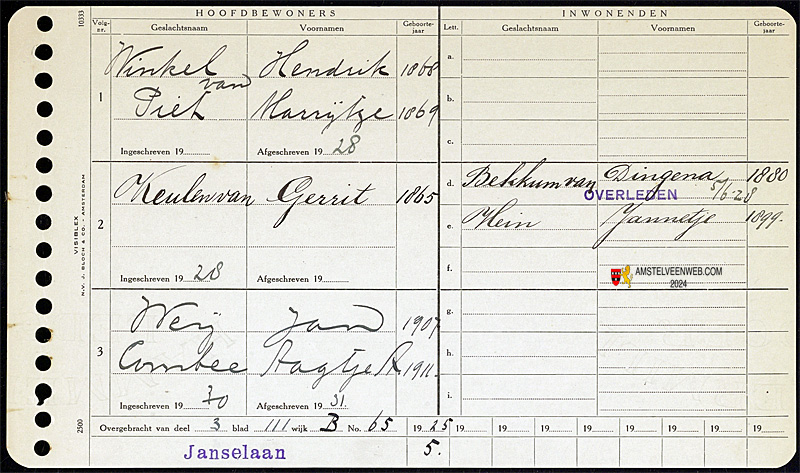 HOOFDBEWONERS INWONENDEN
Volg-nr. Geslachtsnaam Voornamen Geboorte-jaar Lett. Geslachtsnaam Voornamen Geboorte-jaar
10333
1 Winkel van Hendrik 1868
Piet Marrijtze 1869
Ingeschreven 19 Afgeschreven 1928
a.
b.
c.
2 Keulen van Gerrit 1865
Ingeschreven 1928 Afgeschreven 19
d. Bekkum van Dingena 1880
OVERLEDEN 5/6-28
e. Hein Jannetje 1899.
f.
AMSTELVEENWEB.COM
2024
3 Weij Jan 1907
Combee Aagtje A. 1911.
Ingeschreven 1930 Afgeschreven 1931.
g.
h.
i.
VISIBLEX
N.V. J. BLOCH & CO. - AMSTERDAM
2500
Overgebracht van deel 3 blad 111 wijk B No. 65 1925 19 19 19 19 19 19 19 19
Janselaan 5.